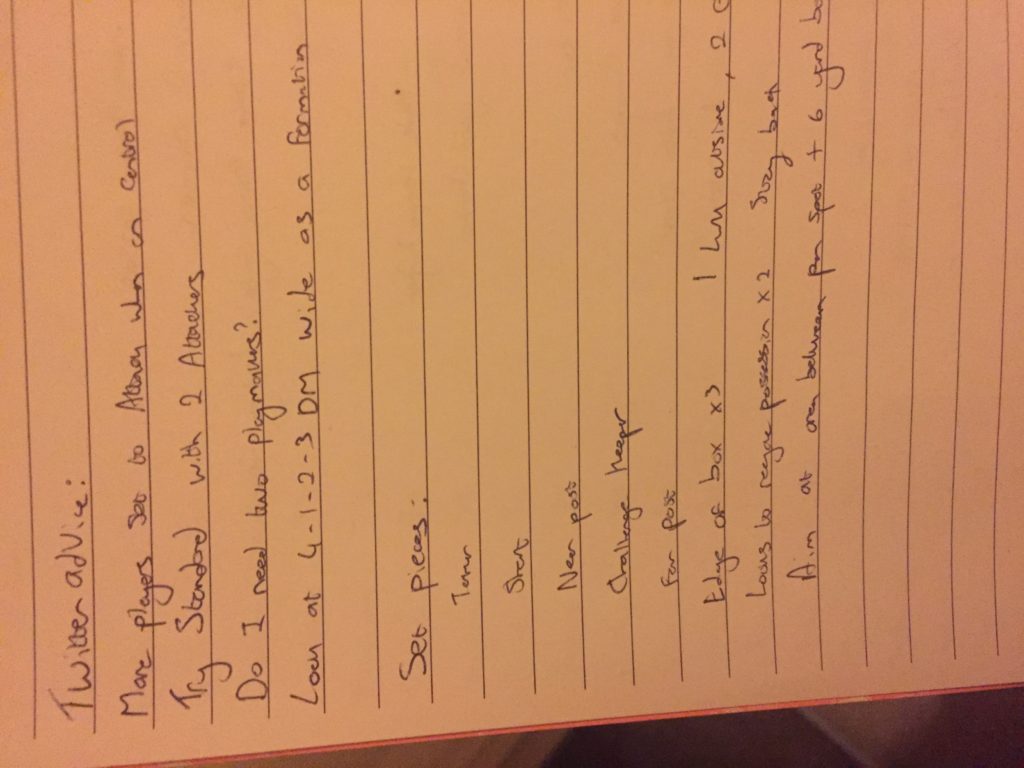 Twitter advice:
More players set to Attack when in control
Try Standard with 2 Attackers
Do I need two playmakers?
Look at 4-1-2-3 DM Wide as a formation
Set pieces:
Taker
Short
Near post
Challenge keeper
Far post
Edge of box x3 1 lurk outside, 2
Looks to recycle possession x2 Stay back
Aim at area between pen spot + 6 yrd bo